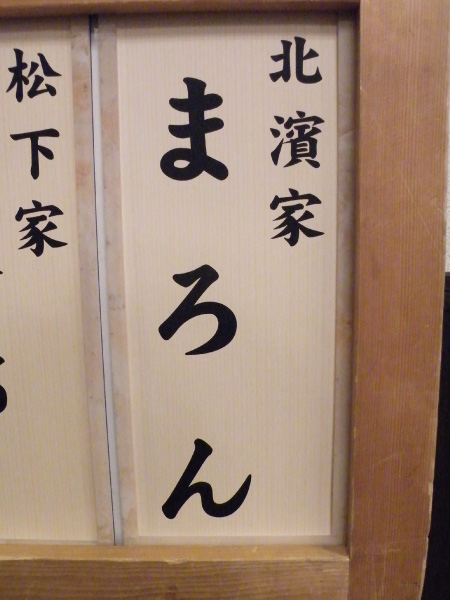 北濱家
まろん
松下家